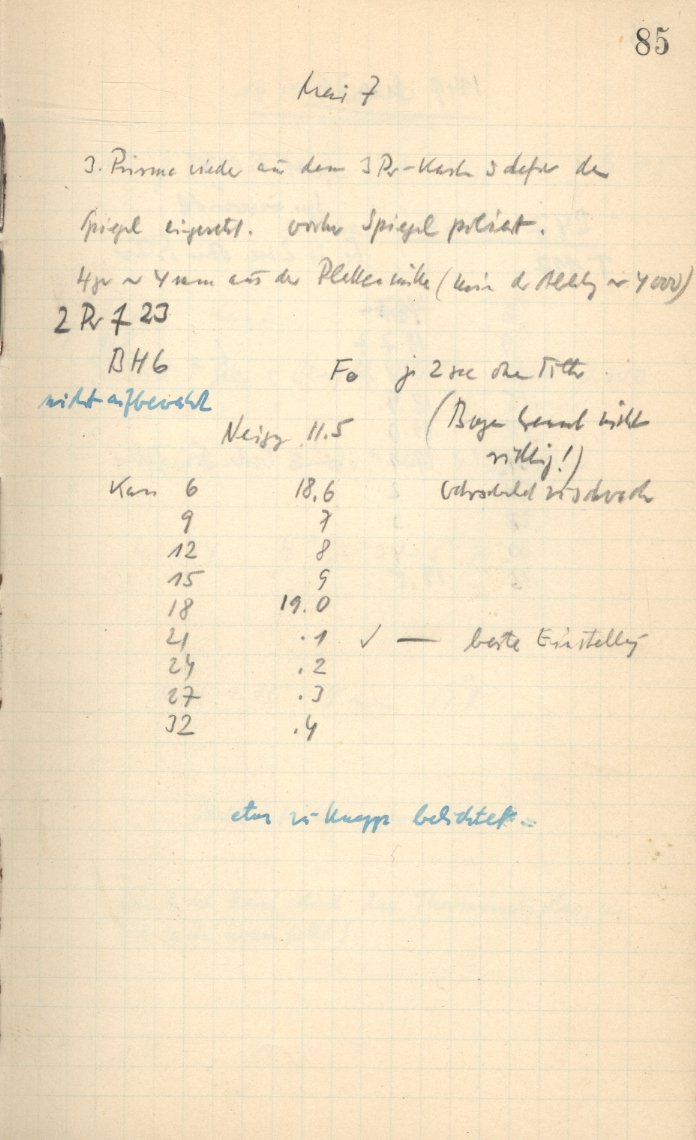 85
Mai 7
3. Prisma wieder aus dem 3 Pr-Kasten dafür den
Spiegel eingesetzt. vorher Spiegel poliert.
4 mm aus der Plattenmitte ( 4000)
2 Pr f 23
BH6 Fe je 2 sec ohne Filter
nicht aufbewahrt
Neigg 11.5 (Bogen brennt nicht
richtig!)
Kass 6 18.6 zu schwach
9 7
12 8
15 9
18 19.0
21 .1 ✓ — beste Einstellung
24 .2
27 .3
32 .4
etwas zu knapp belichtet.